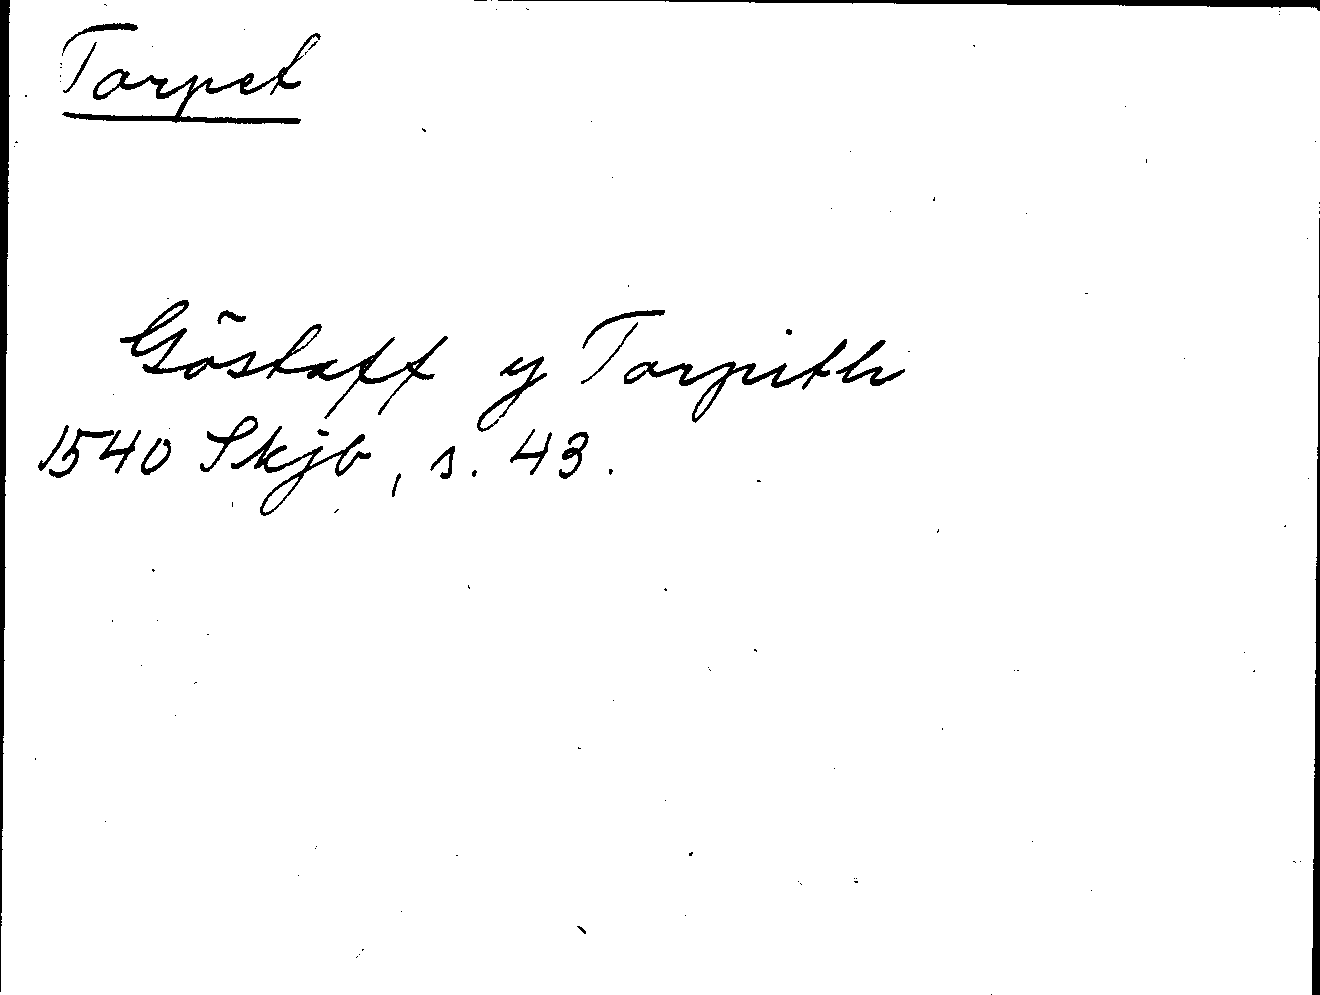 Torpet
Göstaff y Torpith
1540 Skjb, s. 43.